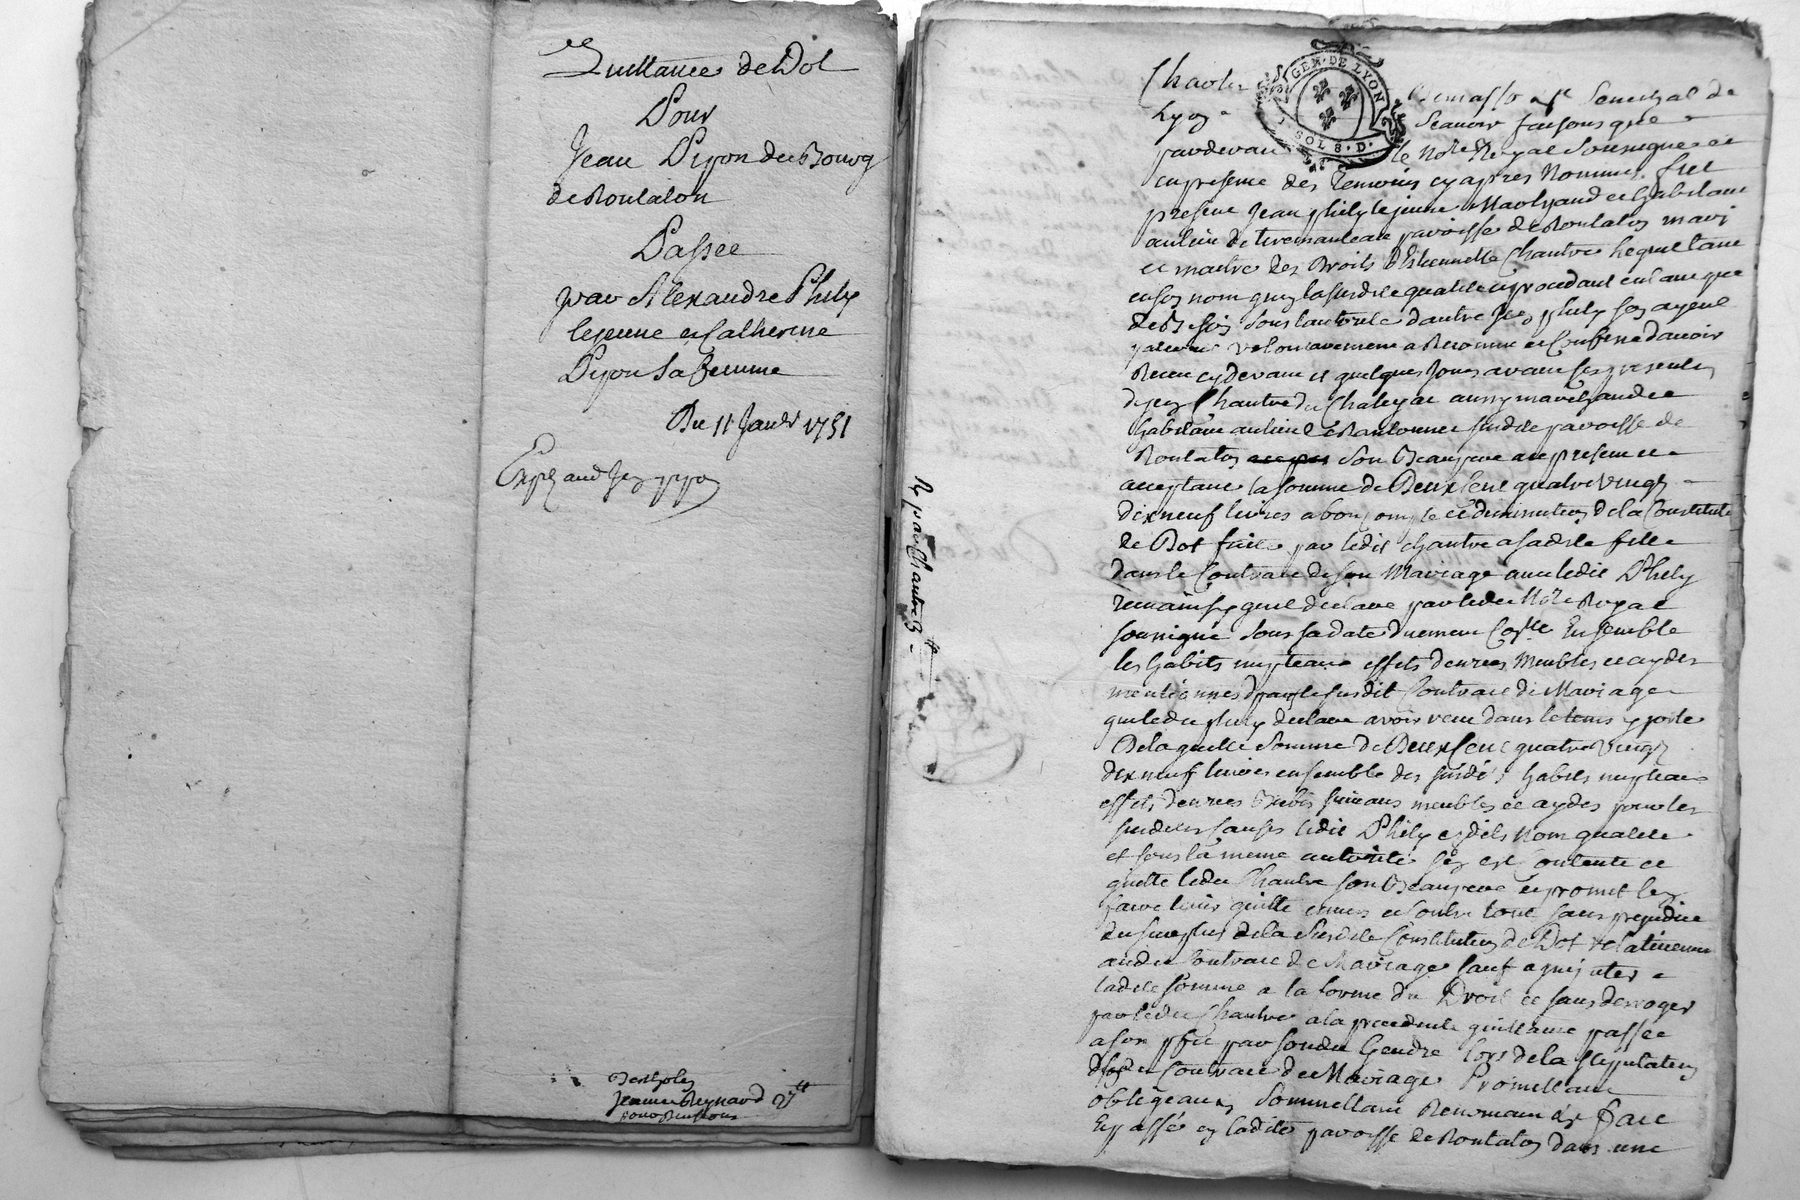 Quittance de Dot
Pour
Jean Pipon du Bourg
de Rontalon
Passée
par Alexandre Phily
lejeune et Catherine
Pipon sa femme
Du 11 Janvr 1751
Exp
Jeanne Reynaud 2tt
Rx par Chantre 3tt
GEN. DE LYON
SOLS. D.
Charles Senechal de
Lyon Scavoir faisons que
pardevan le Nore Royal Soussigne et
en presence des temoins cy apres Nommes fut
present Jean phily lejeune Marchand et habitant
au lieu de tiremanteau paroisse de Rontalon mary
et maitre des Droits d'Estiennette Chantre lequel tant
en son nom qu'en la susdite qualite et procedant en tant que
de Besoin sous l'autorite d'autre Jean phily son ayeul
paternel volontairement a Reconnu et Confesse d'avoir
Receu cy devant et quelques Jours avant ses presentes
de Jean Chantre du Chaley aussy marchand et
habitant au lieu de susdite paroisse de
Rontalon son Beaupere au present et
acceptant la somme de Deux Cent quatre vingt
dix neuf livres a bon Compte et diminution de la Constitution
de Dot faite par ledit Chantre a sadite fille
dans le Contract de son Mariage avec ledit Phily
remain sy quil declare par ledit Nore Royal
soussigné sous sa date Duement Conlle Ensemble
les habits nuptiaux effets denrees Meubles et aydes
mentionnes dans le susdit Contract de Mariage
que ledit phily declare avoir receu dans le tems y porté
De laquelle Somme de Deux Cent quatre vingt
dix neuf livres ensemble des susdits habits nuptiaux
effets denrees meubles et aydes pour les
susdites causes ledit Phily esdits nom qualite
et sous la meme autorité sen est Contenté et
quitte ledit Chantre son Beaupere et promet len
faire tenir quitte envers et Contre tous sans prejudice
du surplus de la susdite Constitution de Dot relativement
audit Contract de Mariage sauf a
ladite somme a la forme du Droit et sans deroger
par ledit Chantre a la precedente quittance passée
a son pfit par sondit Gendre lors de la stipulation
dudit Contract de Mariage Promettant
obligeant Soumettant Renoncant &c fait
et passé en ladite paroisse de Rontalon dans une